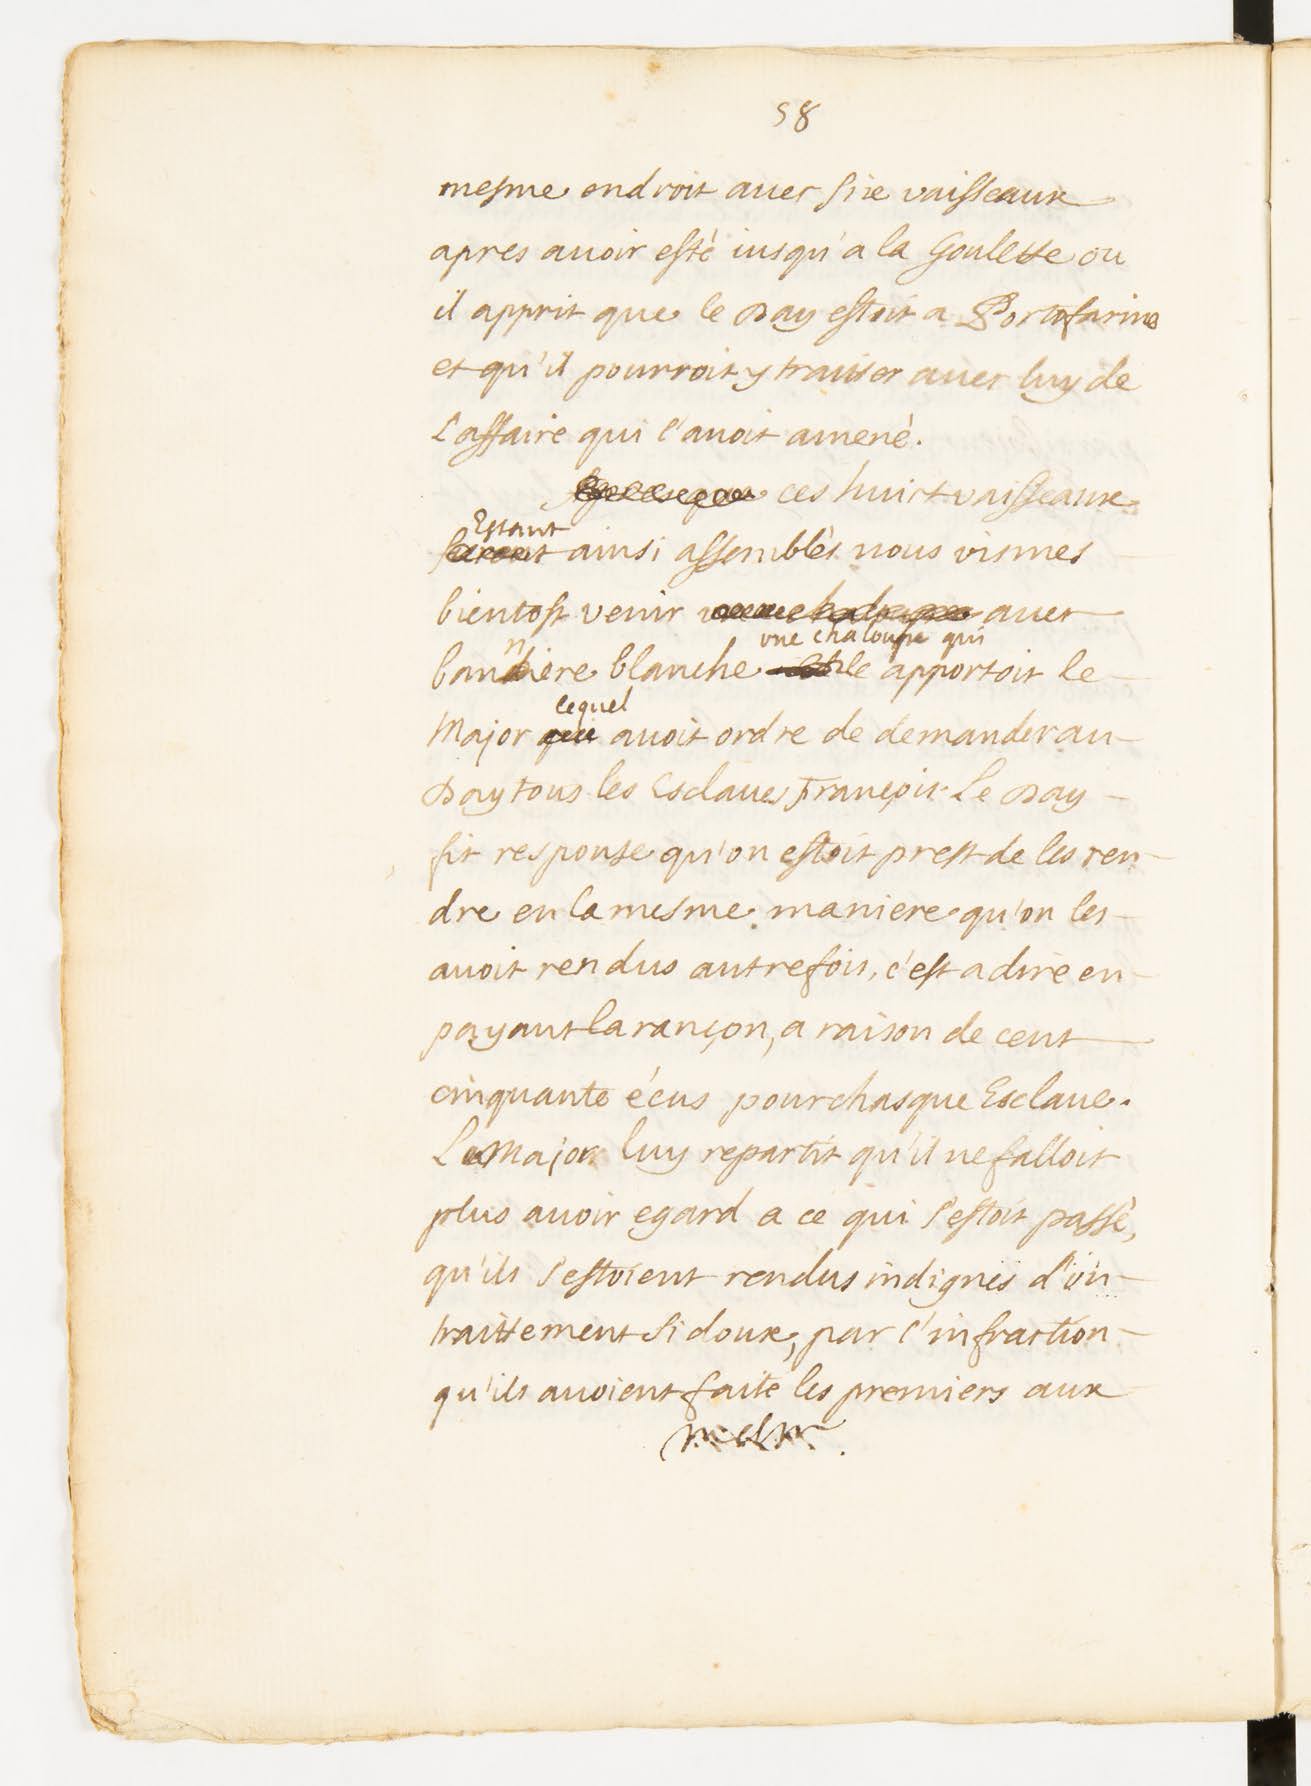 58
mesme endroit avec six vaisseaux
apres avoir esté iusqu'a la Goulette ou
il apprit que le Day estoit a Portofarine
et qu'il pourroit y traitter avec luy de
l'affaire qui l'avoit amené.
ces huict vaisseaux
Estant
ainsi assemblés nous vismes
bientost venir avec
une chaloupe qui
banniere blanche apportoit le
lequel
Major qui avoit ordre de demander au
Day tous les Esclaves François. Le Day
fit response qu'on estoit prest de les ren-
dre en la mesme maniere qu'on les
avoit rendus autrefois, c'est a dire en
payant la rançon, a raison de cent
cinquante écus pour chasque Esclave.
Le Major luy repartit qu'il ne falloit
plus avoir egard a ce qui s'estoit passé,
qu'ils s'estoient rendus indignes d'un
traittement si doux, par l'infraction
qu'ils avoient faite les premiers aux